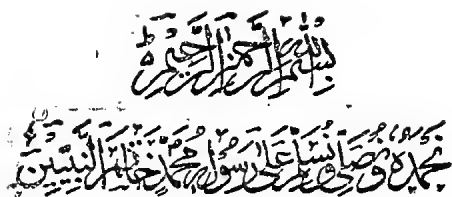 بِسْمِ اللهِ الرَّحْمٰنِ الرَّحِيْمِ
نَحْمَدُهٗ وَنُصَلِّيْ وَنُسَلِّمُ عَلٰى رَسُوْلِهٖ مُحَمَّدٍ خَاتَمِ النَّبِيِّيْنَ